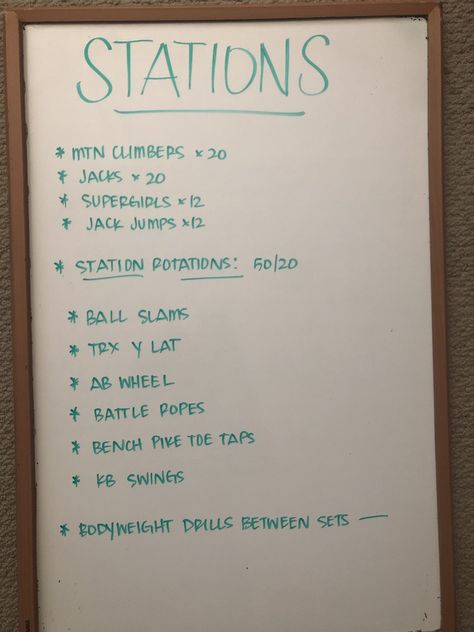 STATIONS
* MTN CLIMBERS x 20
* JACKS x 20
* SUPERGIRLS x 12
* JACK JUMPS x12
* STATION ROTATIONS: 50/20
* BALL SLAMS
* TRX Y LAT
* AB WHEEL
* BATTLE ROPES
* BENCH PIKE TOE TAPS
* KB SWINGS
* BODYWEIGHT DRILLS BETWEEN SETS —